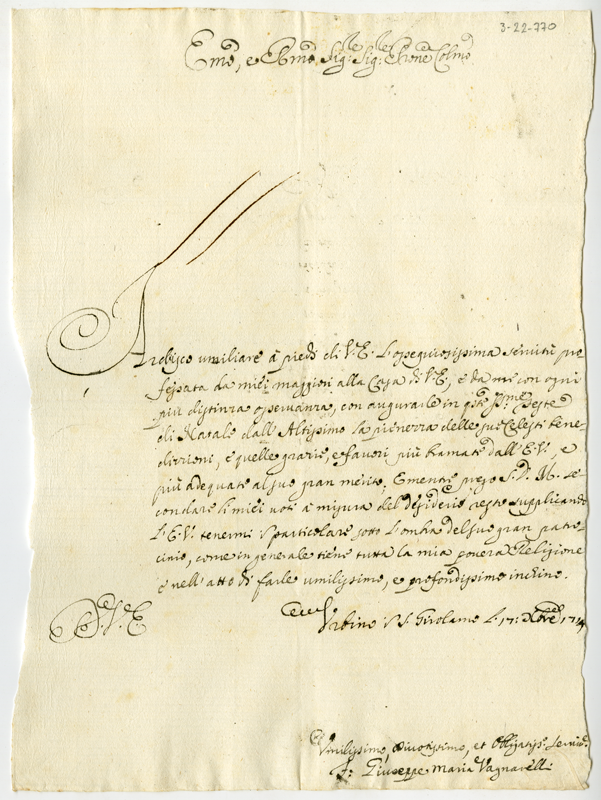 3-22-770
Emo, e Rmo Sig:re Sig:re Prone Colmo
Ardisco umiliare à piedi di V.E. l'ossequiosissima servitù pro
fessata da miei maggiori alla Casa di V.E, e da me con ogni
più distinta osservanza, con augurarle in q.ste S.me Feste
di Natale dall'Altissimo la pienezza delle sue Celesti bene
dizzioni, e quelle grazie, e favori più bramate dall'E.V., e
più adequate al suo gran merito. E mentre prego S.D.M. se
condare li miei voti à misura del desiderio resto supplicando
L'E.V. tenermi in particolare sotto l'ombra del suo gran patro
cinio, come in generale tiene tutta la mia povera Religione
e nell'atto di farle umilissimo, e profondissimo inchino.
Di V.E.
Urbino S. Girolamo L. 17: Xbre 1714
Umilissimo Divotissimo, et Obligatiss. Servid.
F. Giuseppe Maria Vagnarelli